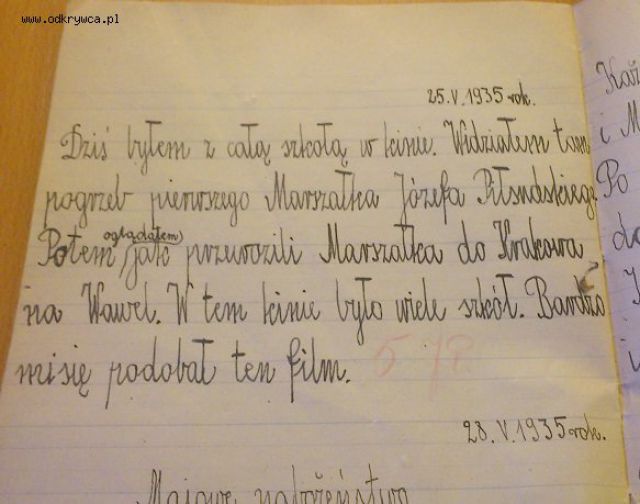 www.odkrywca.pl
25.V.1935 rok.
Dziś byłem z całą szkołą w kinie. Widziałem tam
pogrzeb pierwszego Marszałka Józefa Piłsudskiego.
oglądałem
Potem jak przewozili Marszałka do Krakowa
na Wawel. W tem kinie było wiele szkół. Bardzo
mi się podobał ten film.
28.V.1935 rok.
Majowe nabożeństwo
i M
Po